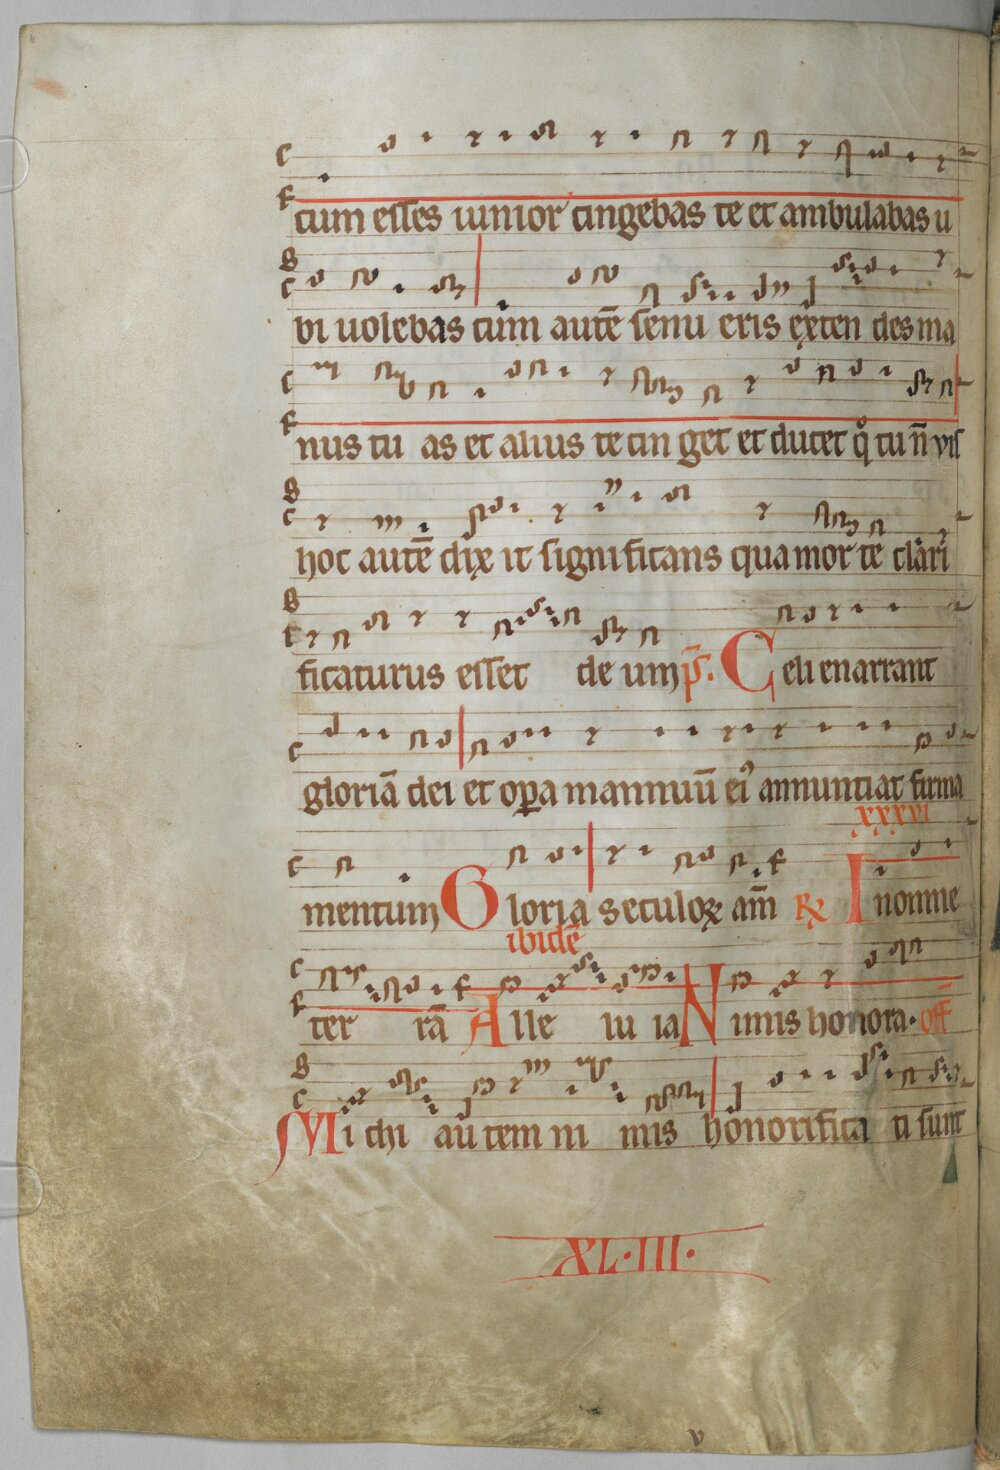 cum esses iunior cingebas te et ambulabas u
bi uolebas cum autē senu eris exten des ma
nus tu as et alius te cin get et ducet qͦ tu n̄ vis
hoc autē dix it significans qua mor te clari
ficaturus esset de um p̄s. Celi enarrant
gloriā dei et opa manuū eiꝰ annuntiat firma
xxxvi
mentum Gloria seculoꝝ am̄ ℟ In omne
ibidē
ter rā Alle lu ia Nimis honora· off̄
Mi chi au tem ni mis honorifica ti sunt
XL·III·
v